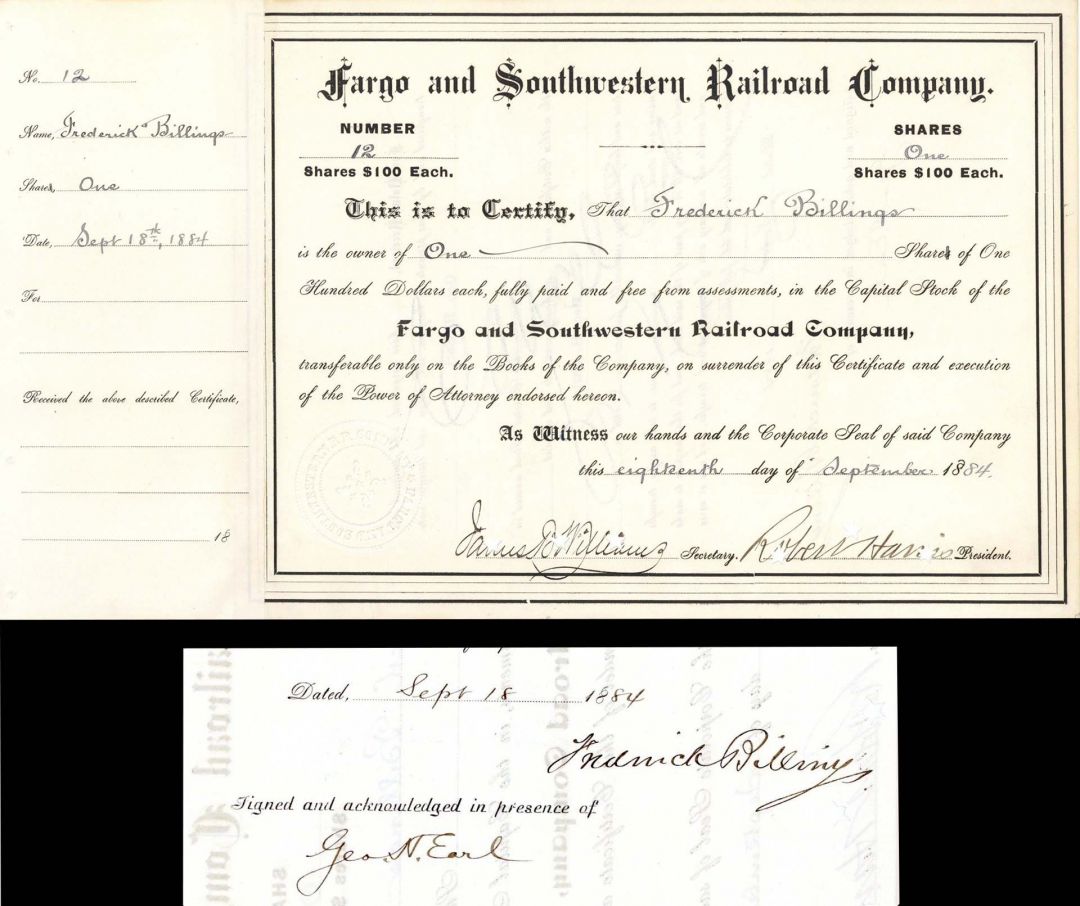 No. 12
Name, Frederick Billings
Shares, One
Date, Sept 18th, 1884
For
Received the above described Certificate,
18
Fargo and Southwestern Railroad Company.
NUMBER
12
Shares $100 Each.
SHARES
One
Shares $100 Each.
This is to Certify, That Frederick Billings
is the owner of One Shares of One
Hundred Dollars each, fully paid and free from assessments, in the Capital Stock of the
Fargo and Southwestern Railroad Company,
transferable only on the Books of the Company, on surrender of this Certificate and execution
of the Power of Attorney endorsed hereon.
As Witness our hands and the Corporate Seal of said Company
this eighteenth day of September 1884.
James B Williams Secretary. Robert Harris President.
Dated, Sept 18 1884
Fredrick Billings
Signed and acknowledged in presence of
Geo. N. Earl